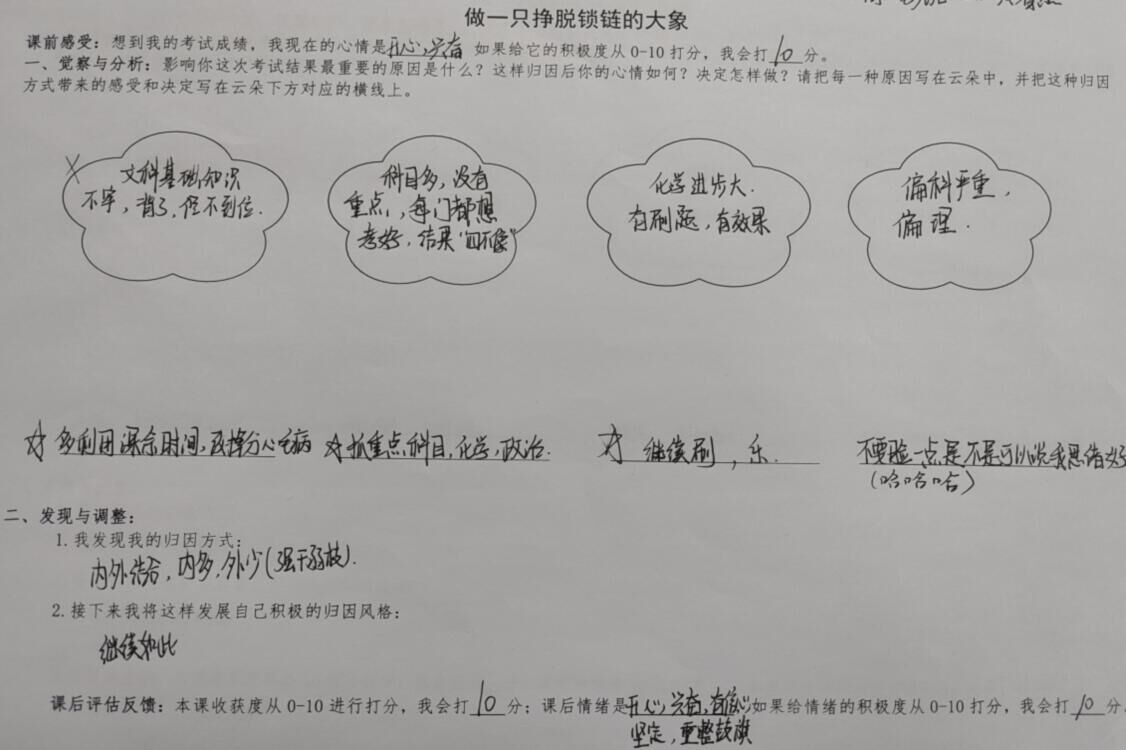 做一只挣脱锁链的大象
课前感受：想到我的考试成绩，我现在的心情是开心,兴奋 如果给它的积极度从 0-10 打分，我会打10分。
一、觉察与分析：影响你这次考试结果最重要的原因是什么？这样归因后你的心情如何？决定怎样做？请把每一种原因写在云朵中，并把这种归因
方式带来的感受和决定写在云朵下方对应的横线上。
文科基础知识
不牢，背了，但不到位.
科目多，没有
重点，每门都想
考好，结果“四不像”
化学进步大.
有刷题，有效果
偏科严重，
偏理.
多利用课余时间,改掉分心毛病
抓重点科目,化学,政治.
继续刷，乐.
不要脸一点是不是可以说我思维好
（哈哈哈）
二、发现与调整：
1.我发现我的归因方式：
内外结合，内多,外少(强干弱枝).
2.接下来我将这样发展自己积极的归因风格：
继续如此
课后评估反馈：本课收获度从 0-10 进行打分，我会打10分；课后情绪是开心,兴奋,有信心如果给情绪的积极度从 0-10 打分，我会打10分.
坚定，重整旗鼓